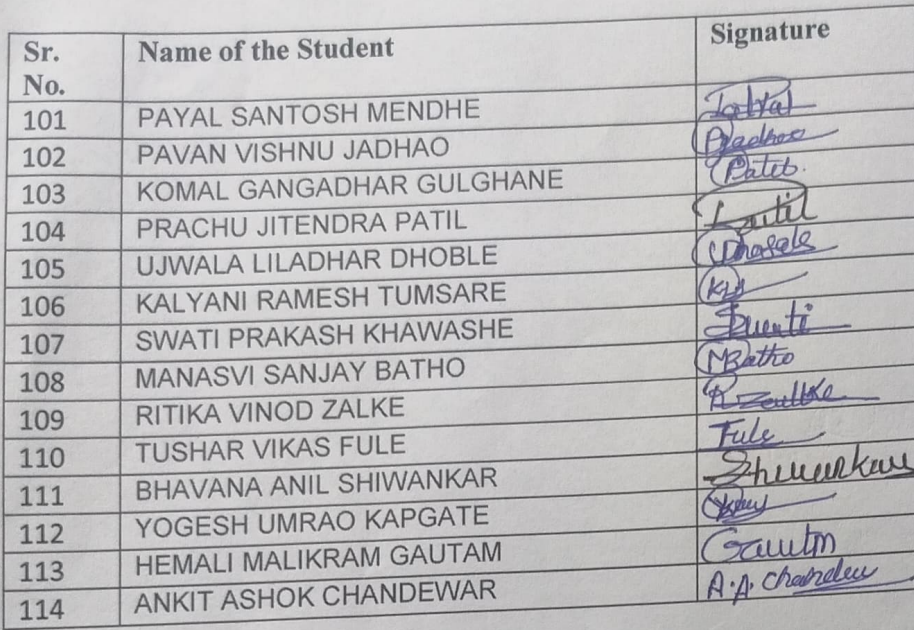 Sr. No. Name of the Student Signature
101 PAYAL SANTOSH MENDHE
102 PAVAN VISHNU JADHAO PJadhao
103 KOMAL GANGADHAR GULGHANE
104 PRACHU JITENDRA PATIL
105 UJWALA LILADHAR DHOBLE
106 KALYANI RAMESH TUMSARE
107 SWATI PRAKASH KHAWASHE
108 MANASVI SANJAY BATHO MBatho
109 RITIKA VINOD ZALKE
110 TUSHAR VIKAS FULE Fule
111 BHAVANA ANIL SHIWANKAR
112 YOGESH UMRAO KAPGATE
113 HEMALI MALIKRAM GAUTAM
114 ANKIT ASHOK CHANDEWAR A.A.